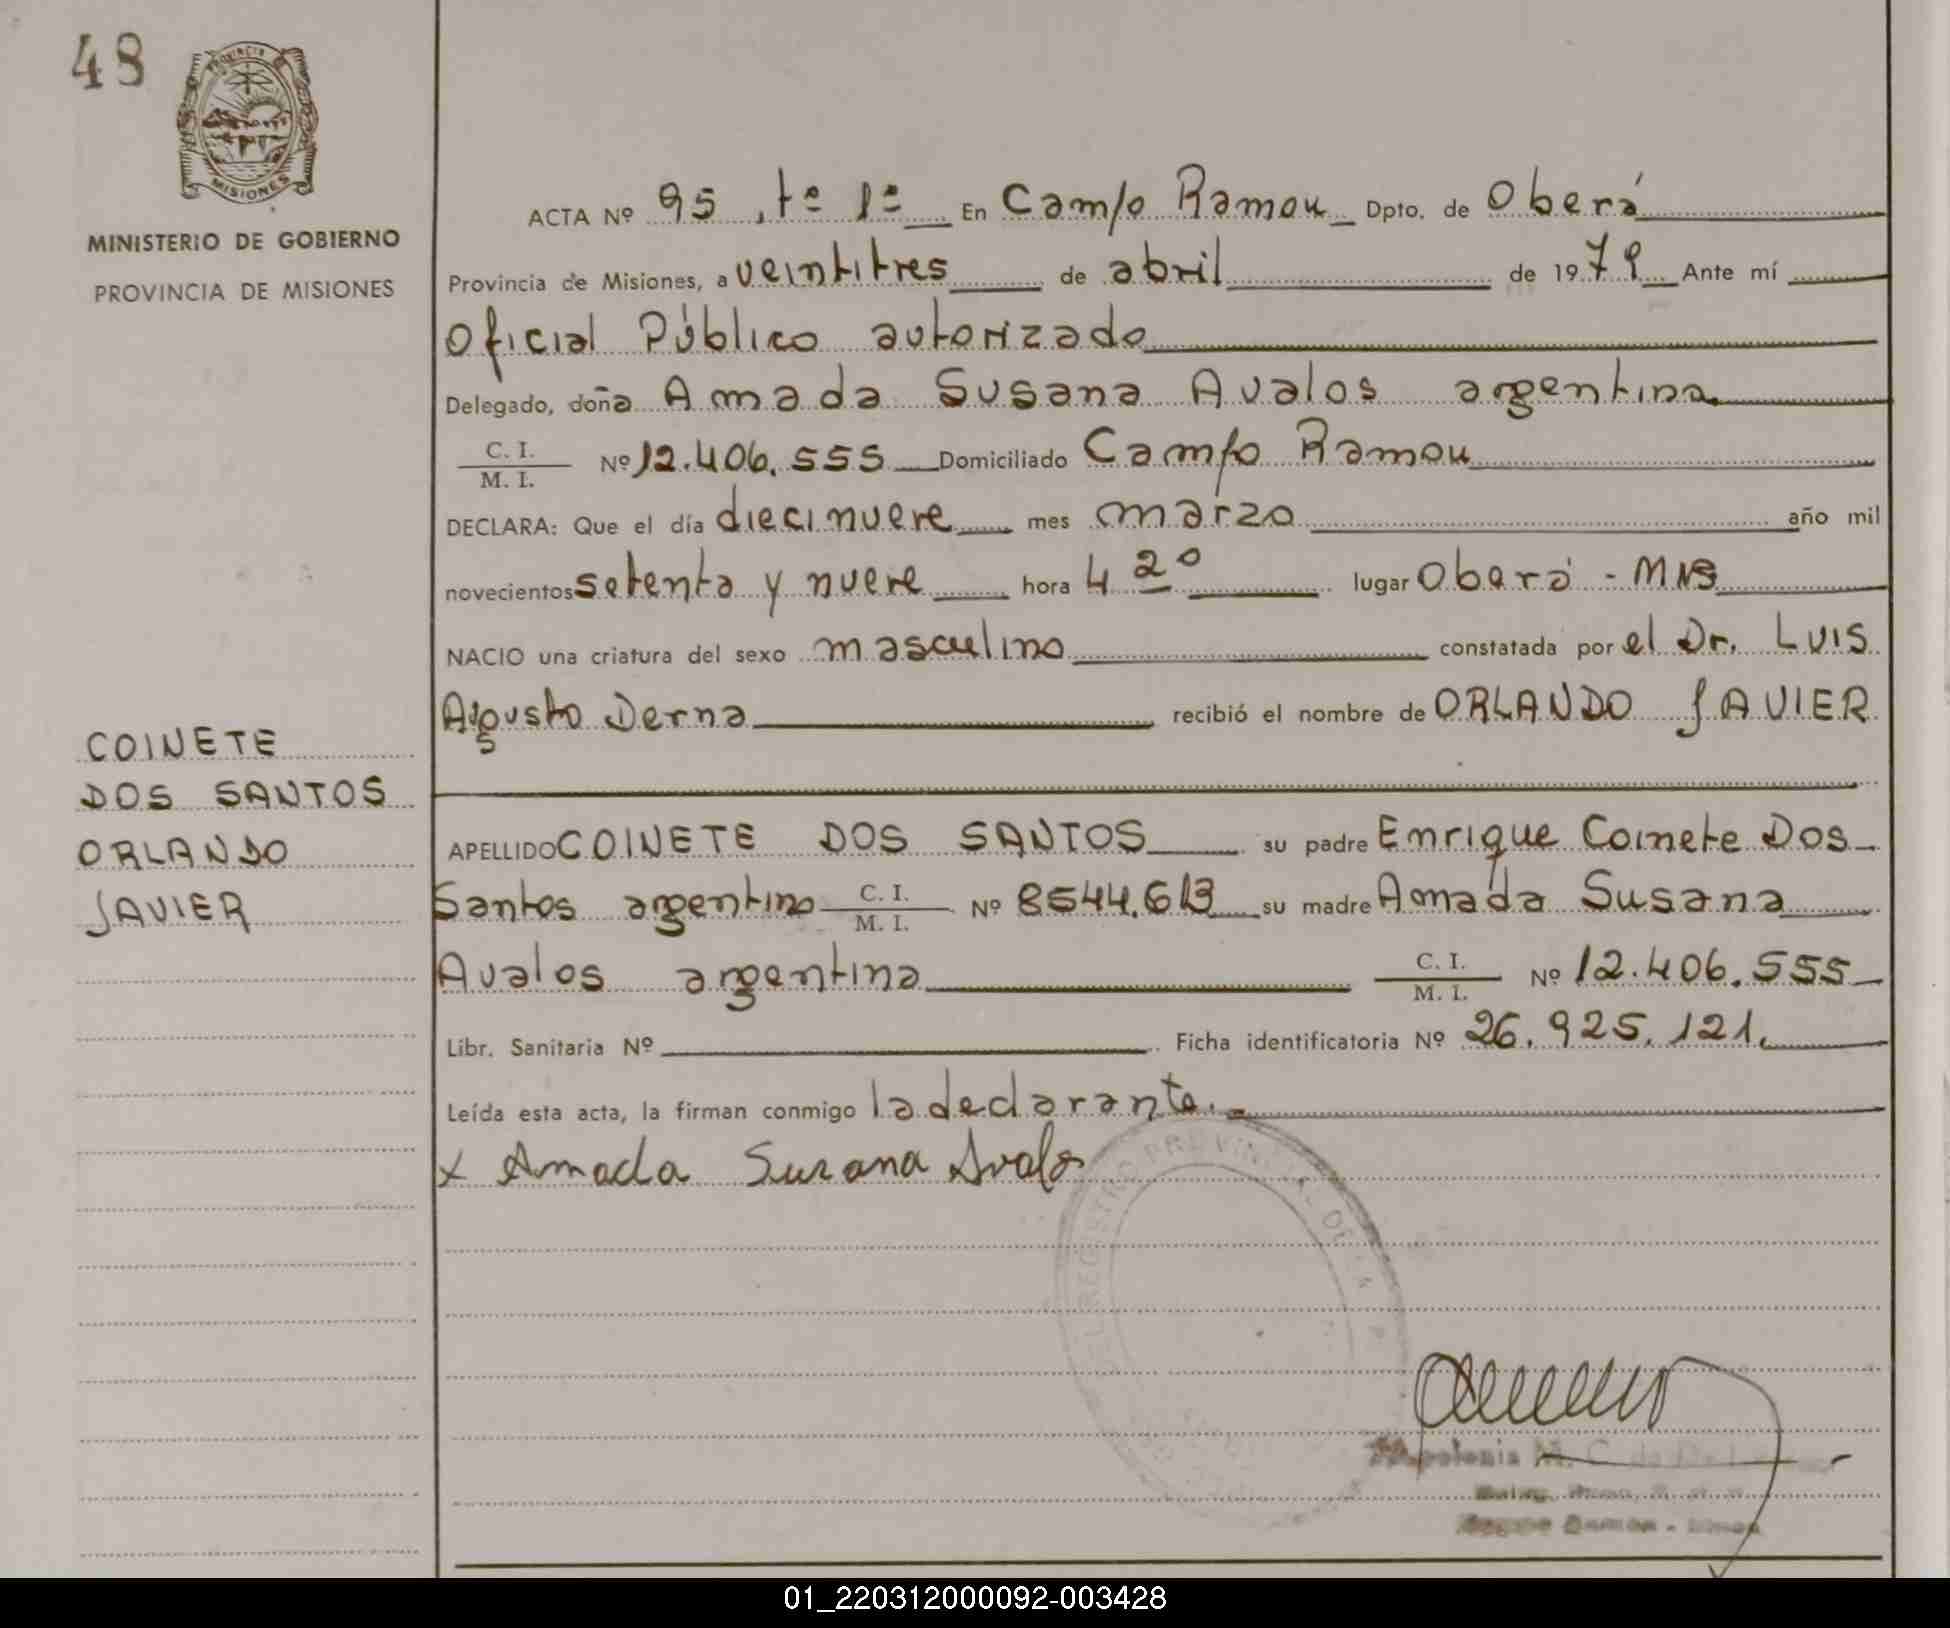 48
PROVINCIA
MISIONES
MINISTERIO DE GOBIERNO
PROVINCIA DE MISIONES
ACTA Nº 95, tº 1º En Campo Ramon Dpto. de Oberá
Provincia de Misiones, a veintitres de abril de 1979 Ante mí
Oficial Público autorizado
Delegado, doña Amada Susana Avalos argentina
C. I.
M. I. Nº 12.406.555 Domiciliado Campo Ramon
DECLARA: Que el día diecinueve mes marzo año mil
novecientos setenta y nueve hora 4 20 lugar Oberá - Mns
NACIO una criatura del sexo masculino constatada por el Dr. Luis
Augusto Derna recibió el nombre de ORLANDO JAVIER
COINETE
DOS SANTOS
ORLANDO
JAVIER
APELLIDO COINETE DOS SANTOS su padre Enrique Coinete Dos
Santos argentino C. I. M. I. Nº 8544.613 su madre Amada Susana
Avalos argentina C. I. M. I. Nº 12.406.555
Libr. Sanitaria Nº Ficha identificatoria Nº 26.925.121.
Leída esta acta, la firman conmigo la declarante.
x Amada Susana Avalos
REGISTRO PROVINCIAL DE LA
M. C. de
Campo Ramon
01_220312000092-003428